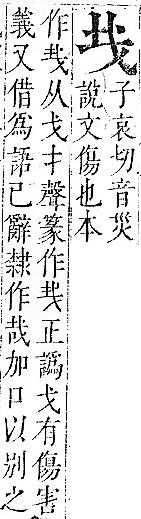 𢦒
子哀切音災
說文傷也本
作𢦏从戈才聲篆作𢦒正譌戈有傷害
義又借爲語已辭隷作哉加口以別之